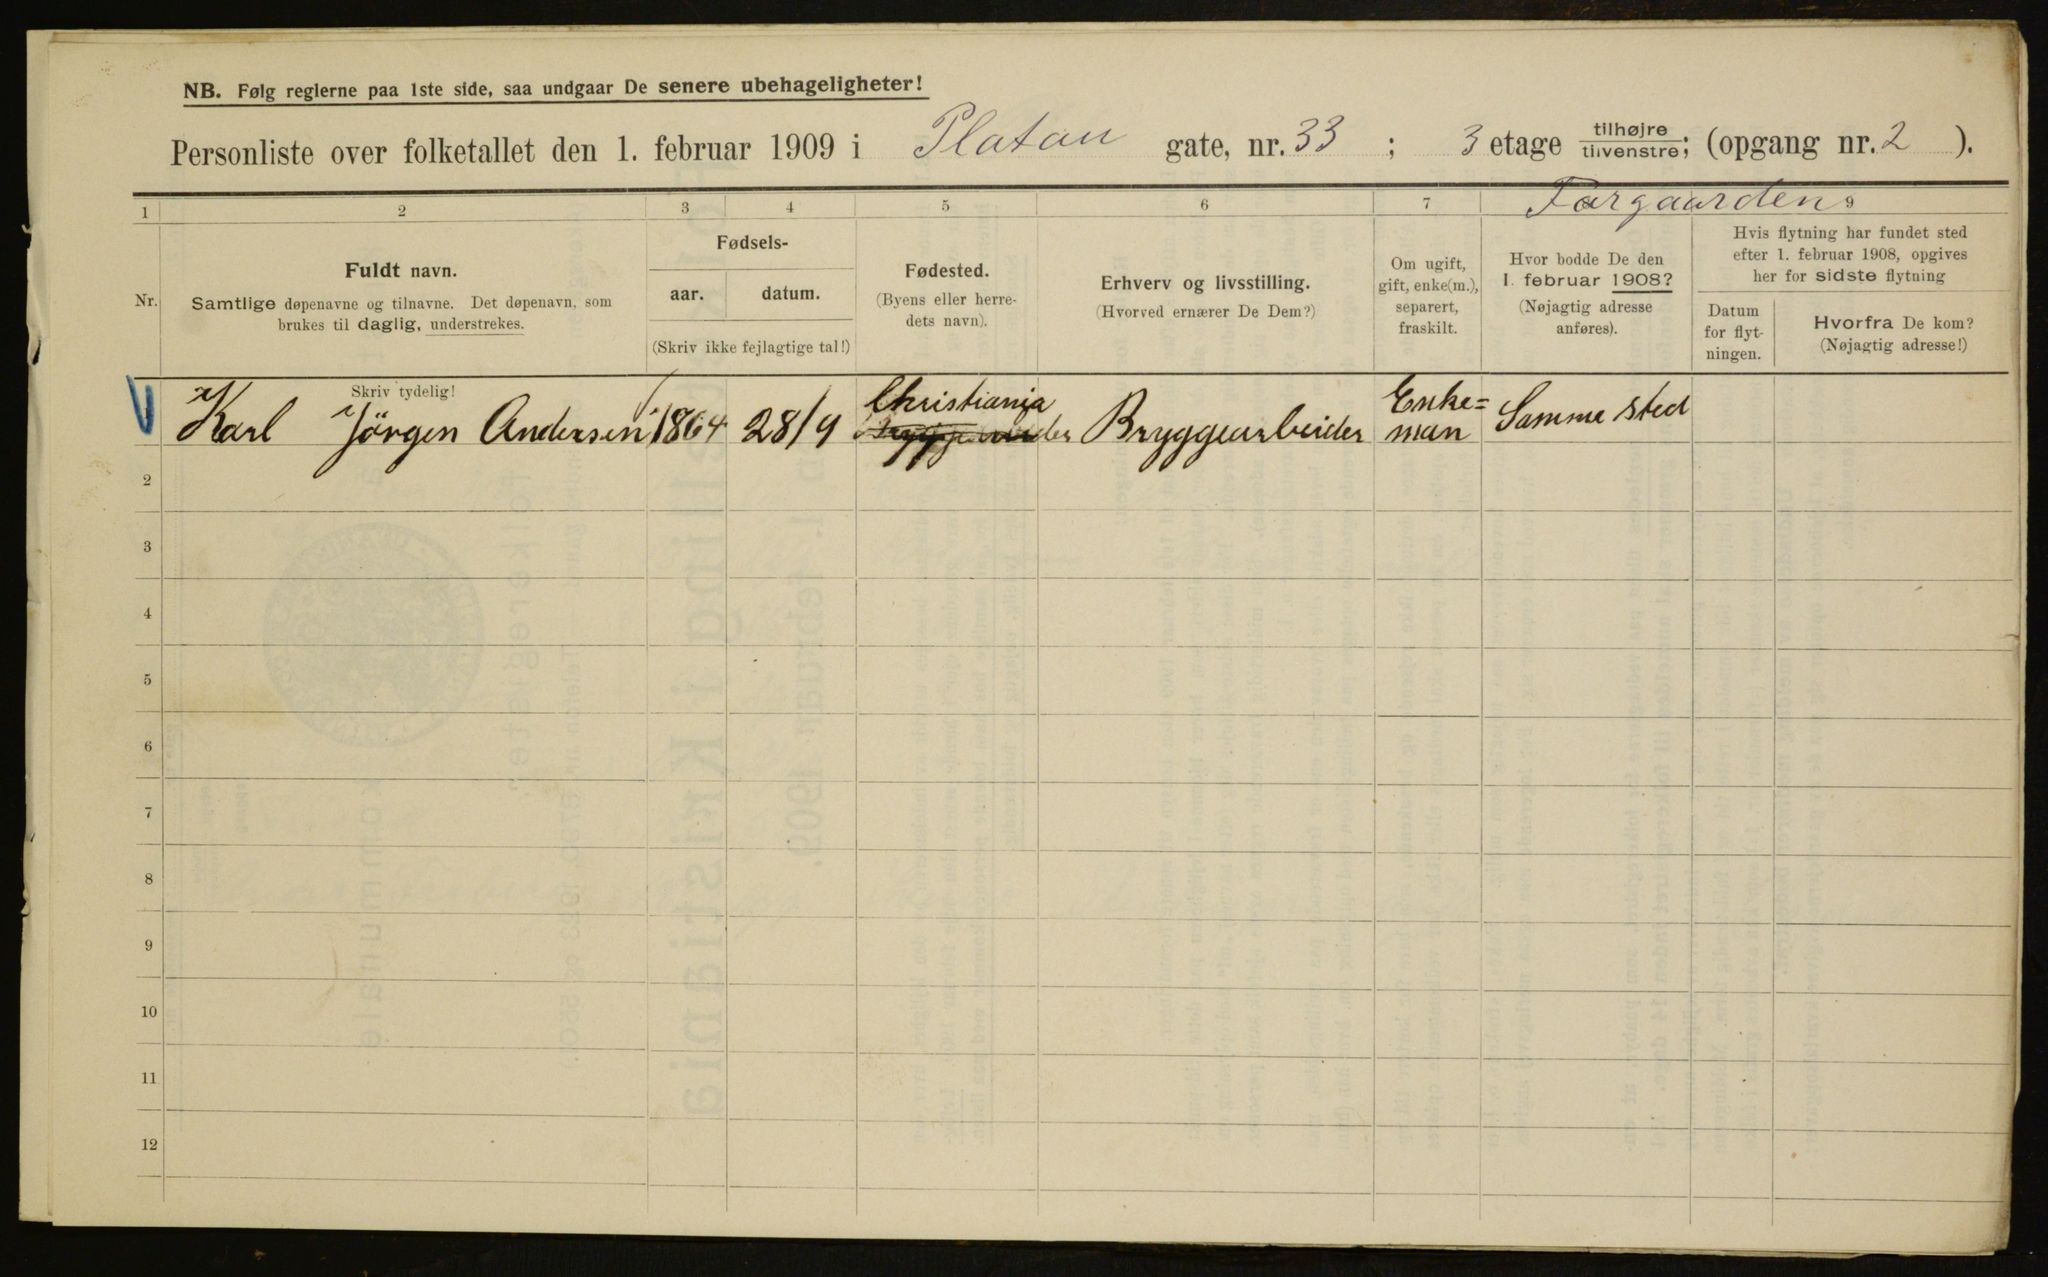 NB. Følg reglerne paa 1ste side, saa undgaar De senere ubehageligheter!
Personliste over folketallet den 1. februar 1909 i Platou gate, nr. 33 ; 3 etage tilhøjre tilvenstre; (opgang nr. 2 ).
Forgaarden
1 2 3 4 5 6 7 9
Nr.
Fuldt navn.
Samtlige døpenavne og tilnavne. Det døpenavn, som
brukes til daglig, understrekes.
Fødsels-
aar. datum.
(Skriv ikke fejlagtige tal!)
Fødested.
(Byens eller herre-
dets navn).
Erhverv og livsstilling.
(Hvorved ernærer De Dem?)
Om ugift,
gift, enke(m.),
separert,
fraskilt.
Hvor bodde De den
1. februar 1908?
(Nøjagtig adresse
anføres).
Hvis flytning har fundet sted
efter 1. februar 1908, opgives
her for sidste flytning
Datum
for flyt-
ningen.
Hvorfra De kom?
(Nøjagtig adresse!)
Skriv tydelig!
Karl Jörgen Andersen 1864 28/9 Christiania Bryggearbeider Enke=
man Samme sted
2
3
4
5
6
7
8
9
10
11
12